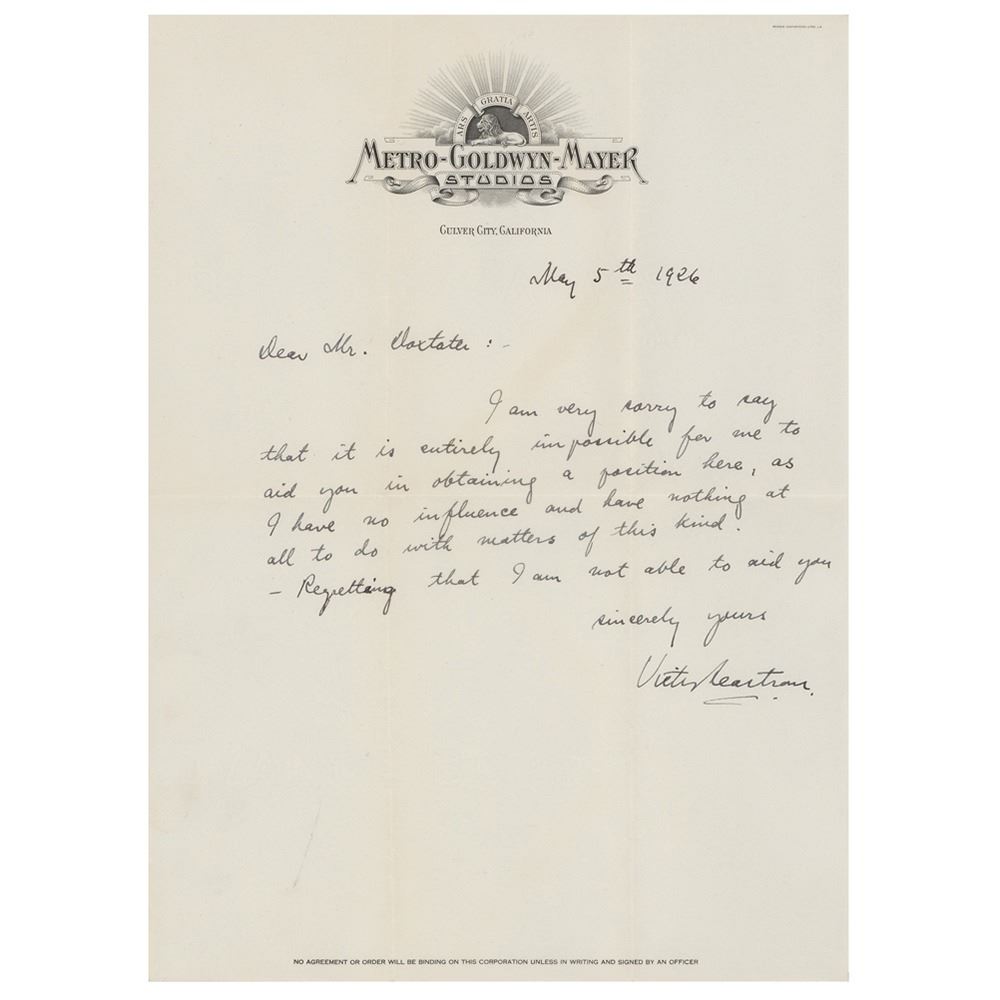 ARS GRATIA ARTIS
METRO-GOLDWYN-MAYER
STUDIOS
CULVER CITY, CALIFORNIA
May 5th 1926
Dear Mr. Doxtater :-
I am very sorry to say
that it is entirely impossible for me to
aid you in obtaining a position here, as
I have no influence and have nothing at
all to do with matters of this kind.
- Regretting that I am not able to aid you
sincerely yours
Victor Seastrom.
NO AGREEMENT OR ORDER WILL BE BINDING ON THIS CORPORATION UNLESS IN WRITING AND SIGNED BY AN OFFICER